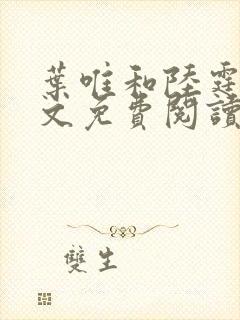 葉唯和陸霆
文免費閱讀
雙生